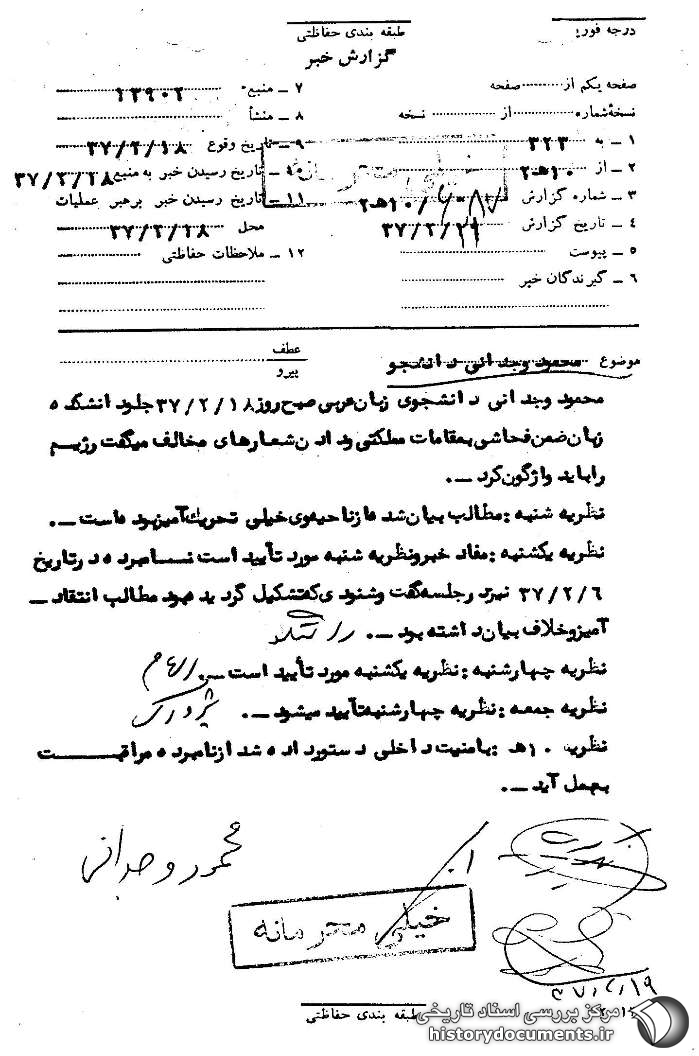 درجه فوریـ طبقه بندی حفاظتی
گزارش خبر
صفحه یکم از صفحه ۷ ـ منبع ۱۳۹۰۲
نسخه‌شماره از نسخه ۸ ـ منشأ
۱ ـ به ۳۲۳ ۹ ـ تاریخ وقوع ۳۷/۲/۱۸
۲ ـ از ۱۰هـ۲ ۱۰ ـ تاریخ رسیدن خبر به منبع ۳۷/۲/۱۸
خیلی محرمانه
۳ ـ شماره گزارش ۱۰هـ۲ ۱۱ ـ تاریخ رسیدن خبر برهبر عملیات
۴ ـ تاریخ گزارش ۳۷/۲/۲۱ محل ۳۷/۲/۱۸
۵ ـ پیوست ۱۲ ـ ملاحظات حفاظتی
۶ ـ گیرندگان خبر
موضوع محمود وجدانی دانشجو عطف
پیرو
محمود وجدانی دانشجوی زبان عربی صبح روز ۳۷/۲/۱۸ جلو دانشکده
زبان ضمن فحاشی بمقامات مملکتی و دادن شعارهای مخالف میگفت رژیم
را باید واژگون کرد ــ.
نظریه شنبه : مطالب بیان شده از ناحیه وی خیلی تحریک آمیز بوده است ــ.
نظریه یکشنبه : مفاد خبر و نظریه شنبه مورد تأیید است نـامبرده در تاریخ
۳۷/۲/۶ نیز در جلسه گفت و شنودی که تشکیل گردیده بود مطالب انتقاد ــ
آمیز و خلاف بیان داشته بود ــ.
نظریه چهارشنبه : نظریه یکشنبه مورد تأیید است ــ.
نظریه جمعه : نظریه چهارشنبه تأیید میشود ــ. پژواک
نظریه ۱۰هـ : بامنیت داخلی دستور داده شد از نامبرده مراقبـــت
بعمل آید ــ.
محمود وجدانی
خیلی محرمانه
۳۷/۲/۱۹
طبقه بندی حفاظتی
مرکز بررسی اسناد تاریخی
historydocuments.ir